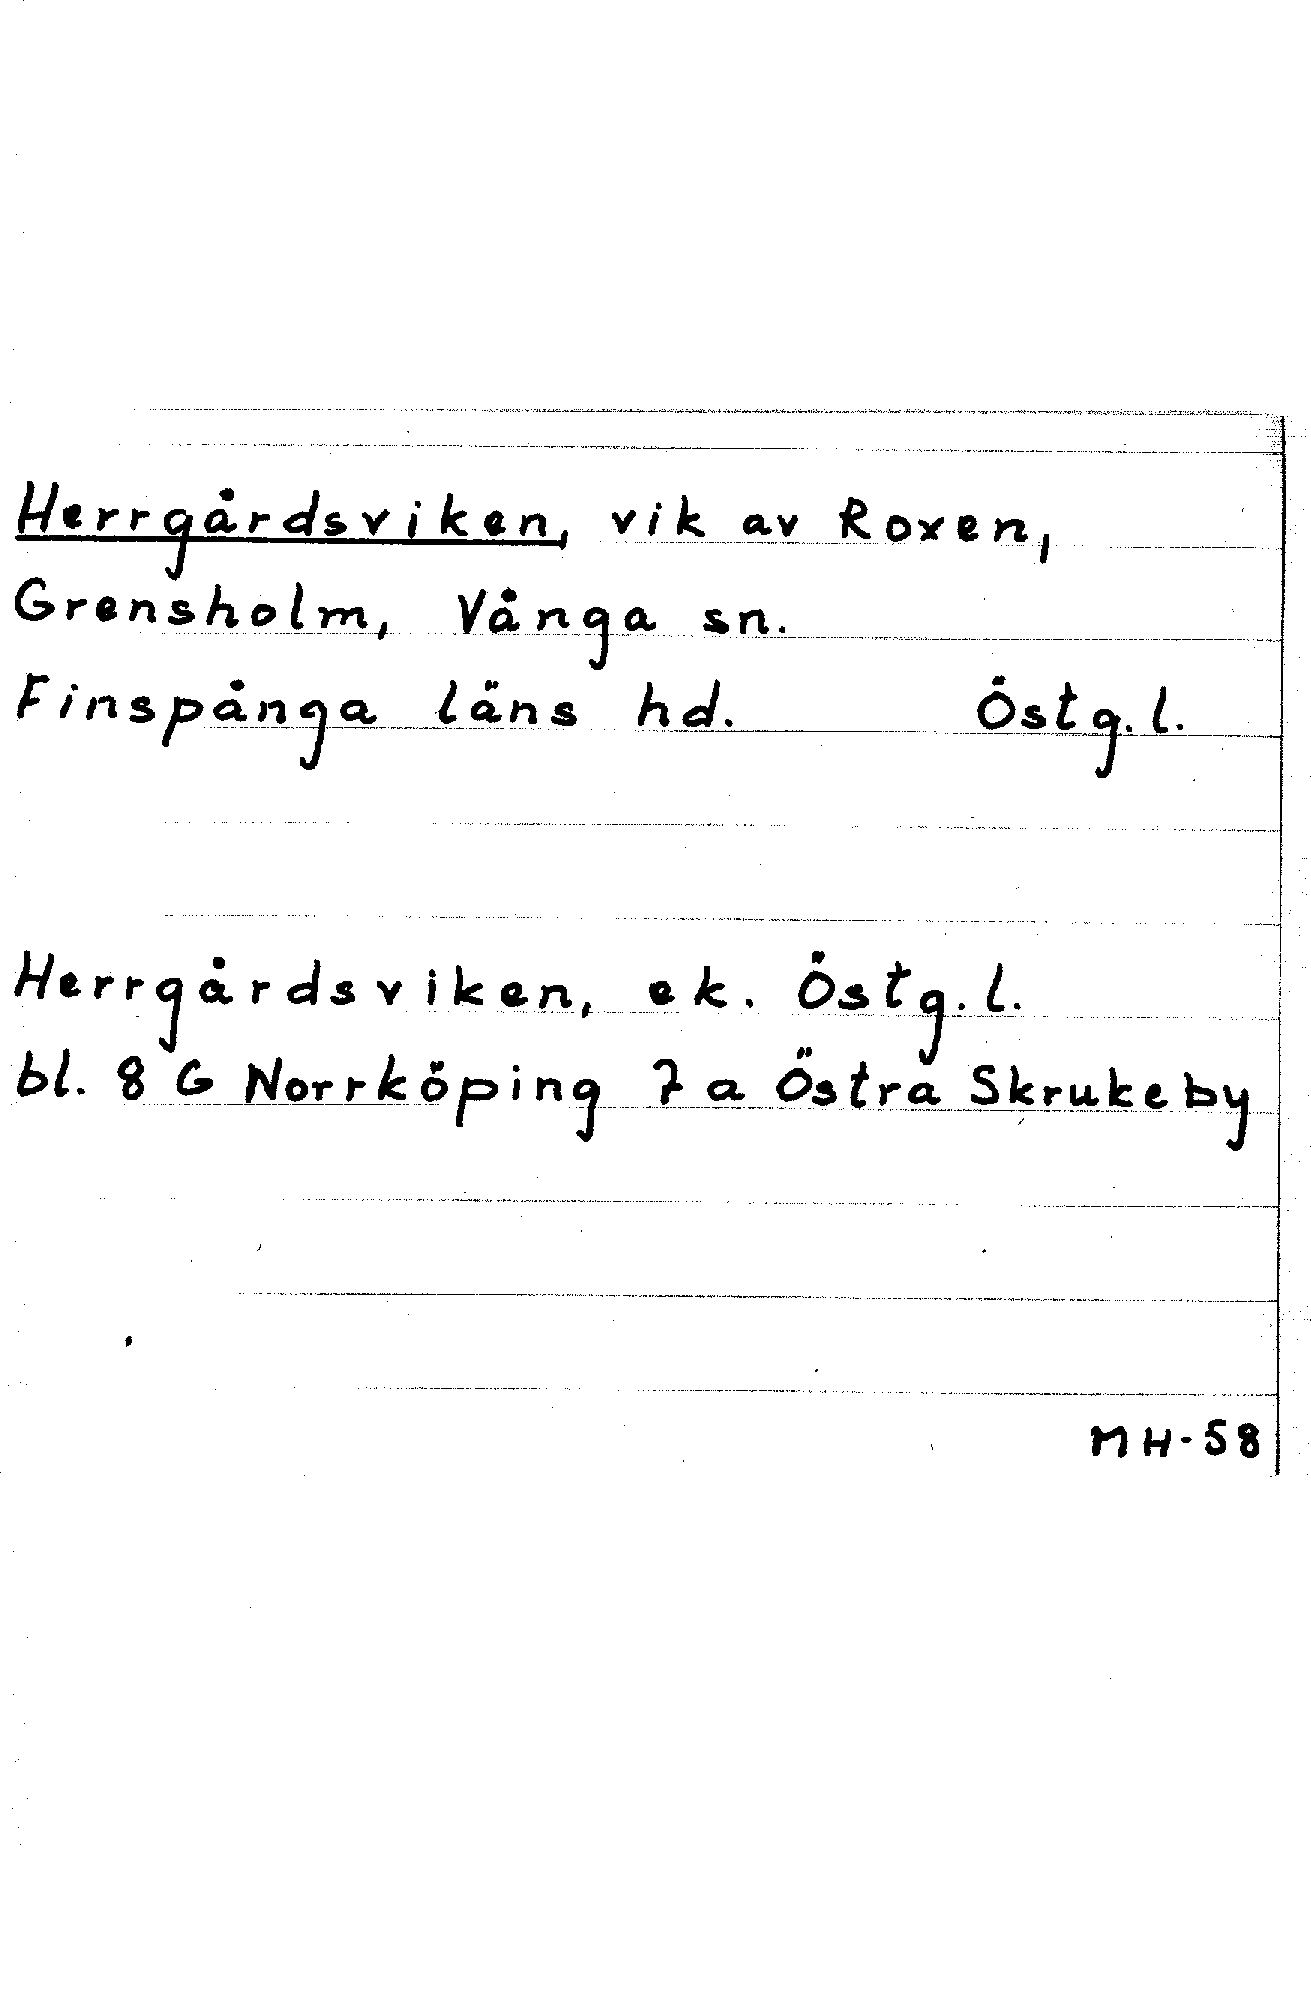 Herrgårdsviken, vik av Roxen,
Grensholm, Vånga sn.
Finspånga läns hd. Östg. l.
Herrgårdsviken, ek. Östg. l.
bl. 8 G Norrköping 7 a Östra Skrukeby
MH-58